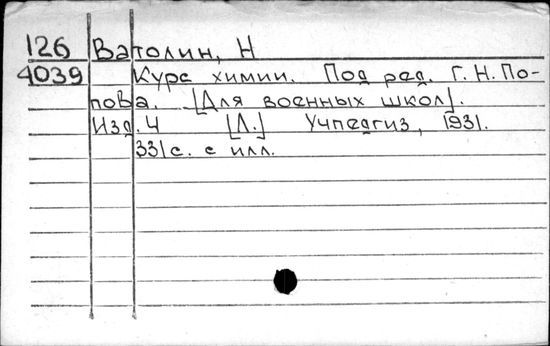 126 Ватолин, Н
4039 Курс химии. Под ред. Г. Н. По-
пова. [Для военных школ].
Изд. 4 [Л.] Учпедгиз, 1931.
331 с. с илл.